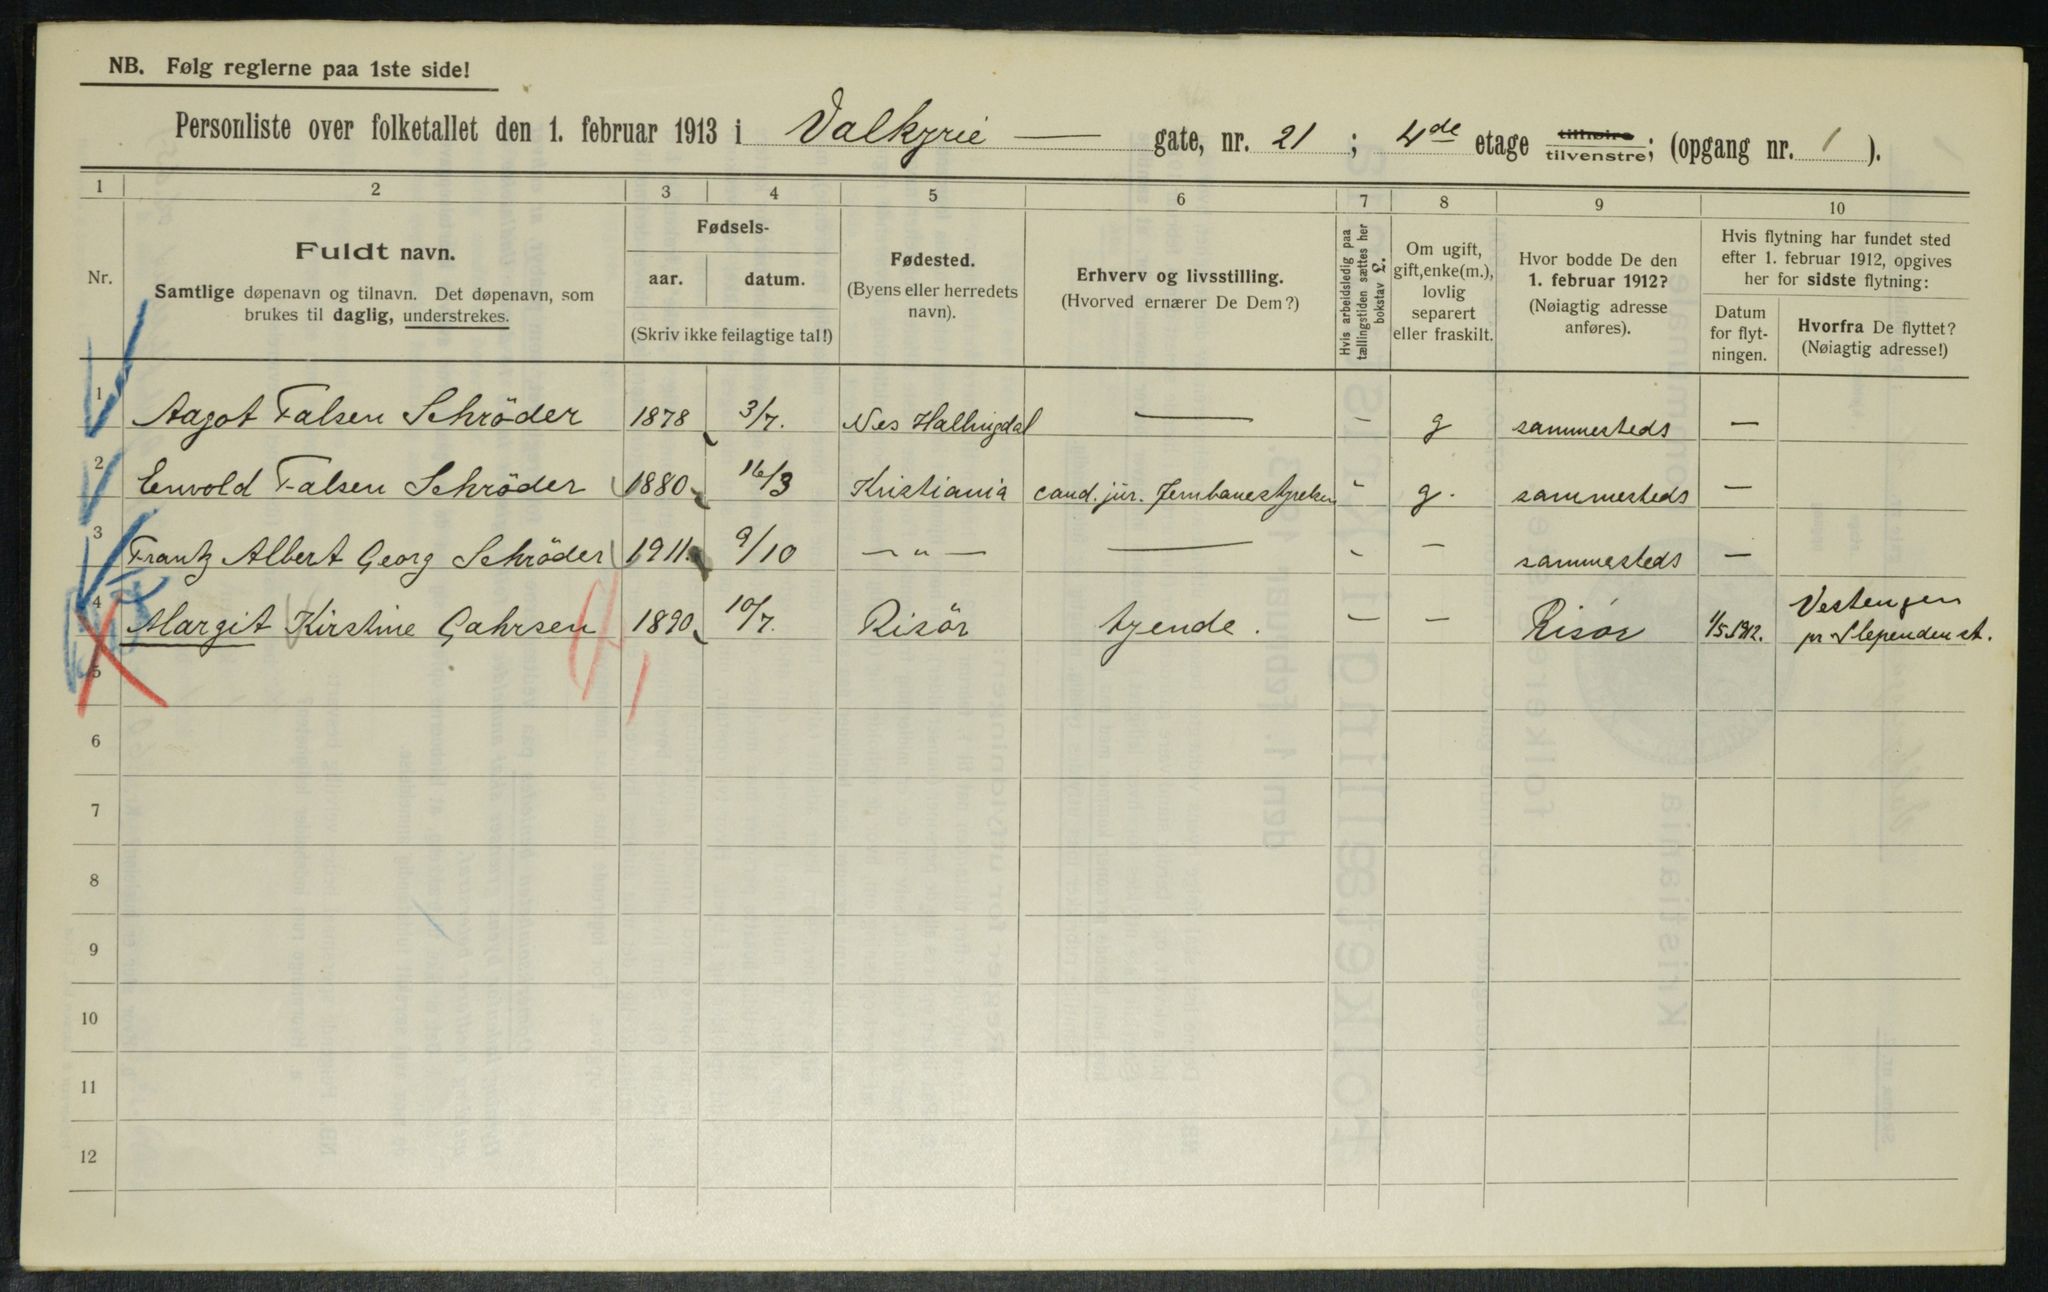 NB. Følg reglerne paa 1ste side!
Personliste over folketallet den 1. februar 1913 i Valkyrie — gate, nr. 21 ; 4de etage tilhøire tilvenstre; (opgang nr. 1 ).
1 2 3 4 5 6 7 8 9 10
Nr.
Fuldt navn.
Samtlige døpenavn og tilnavn. Det døpenavn, som
brukes til daglig, understrekes.
Fødsels-
aar. datum.
(Skriv ikke feilagtige tal!)
Fødested.
(Byens eller herredets
navn).
Erhverv og livsstilling.
(Hvorved ernærer De Dem?)
Hvis arbeidsledig paa
tællingstiden sættes her
bokstav L.
Om ugift,
gift, enke(m.),
lovlig
separert
eller fraskilt.
Hvor bodde De den
1. februar 1912?
(Nøiagtig adresse
anføres).
Hvis flytning har fundet sted
efter 1. februar 1912, opgives
her for sidste flytning:
Datum
for flyt-
ningen.
Hvorfra De flyttet?
(Nøiagtig adresse!)
1 Aagot Falsen Schröder 1878 3/7. Nes Hallingdal — - g sammesteds —
2 Envold Falsen Schröder 1880 16/3 Kristiania cand. jur. Jernbanestyrelsen - g. sammesteds —
3 Frantz Albert Georg Schröder 1911. 9/10 — " — — - — sammesteds —
4 Margit Kirstine Gahrsen 1890 10/7. Risör tjende. — — Risör 1/5 1912. Vestengen
pr Slependen st.
5
6
7
8
9
10
11
12